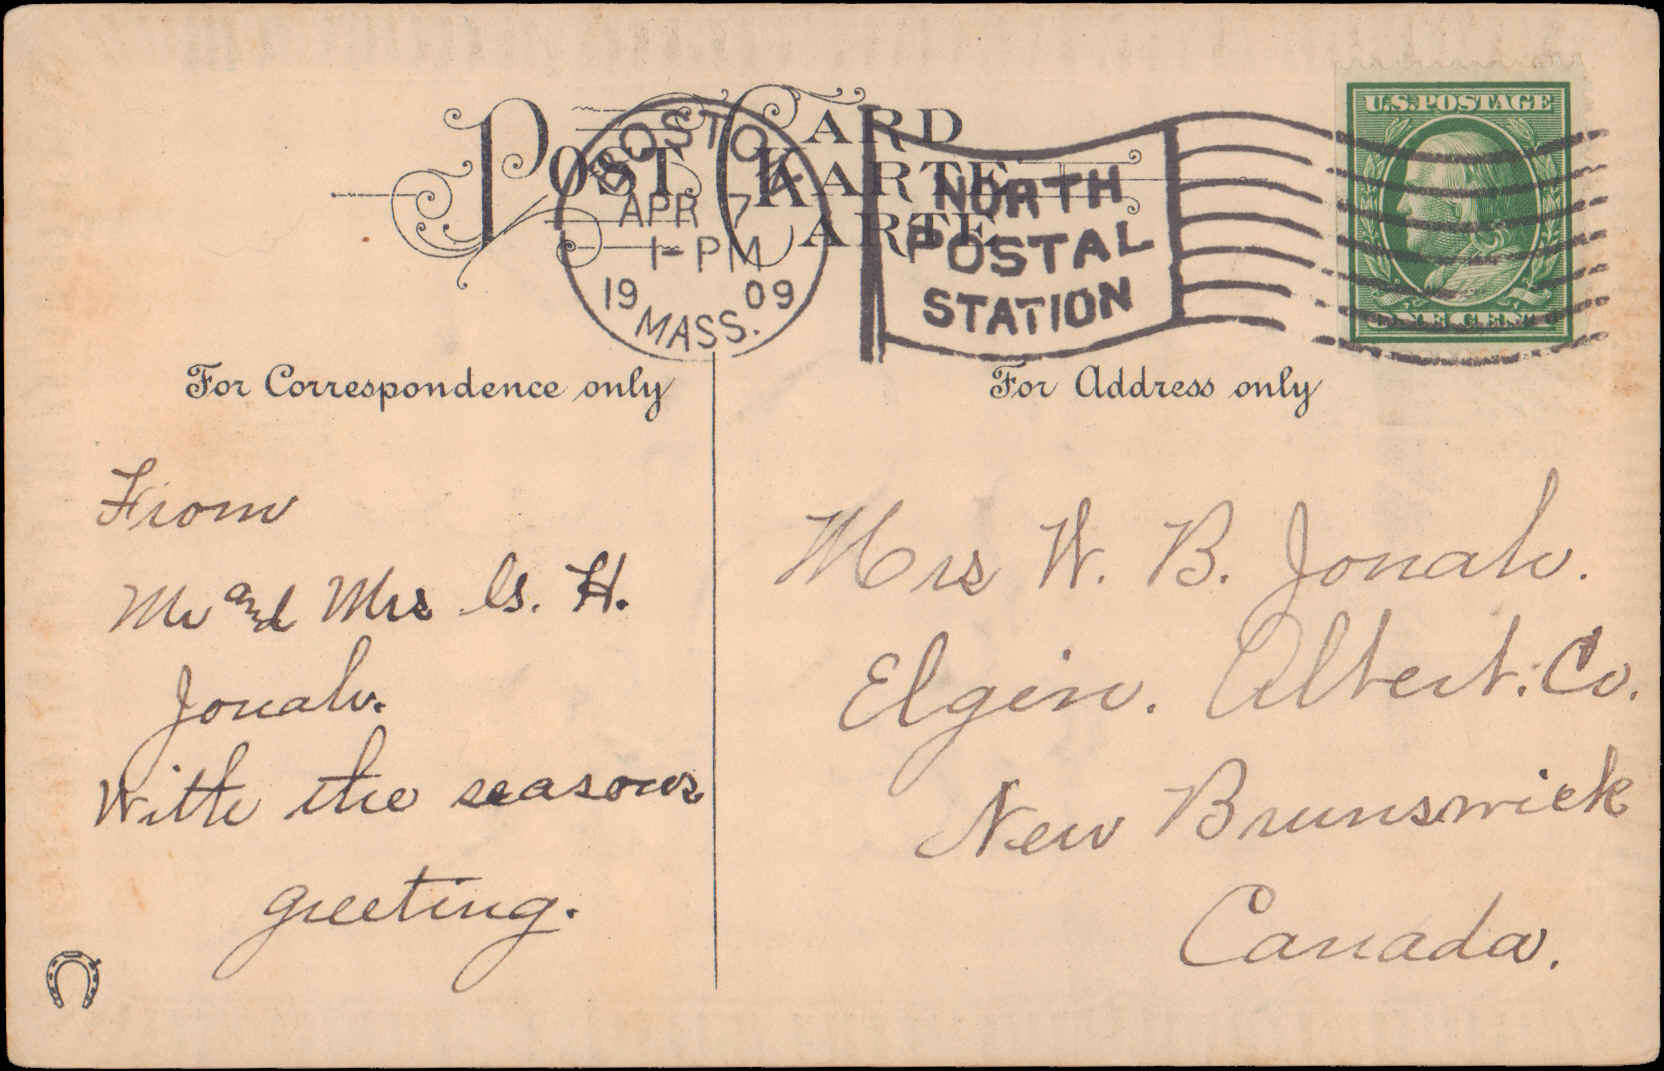 POST CARD
KARTE
CARTE
BOSTON
APR 7
1-PM
1909
MASS.
NORTH
POSTAL
STATION
U.S. POSTAGE
ONE CENT
For Correspondence only
For Address only
From
Mr and Mrs G. H.
Jonah.
With the seasons
greeting.
Mrs W. B. Jonah.
Elgin. Albert. Co.
New Brunswick
Canada.